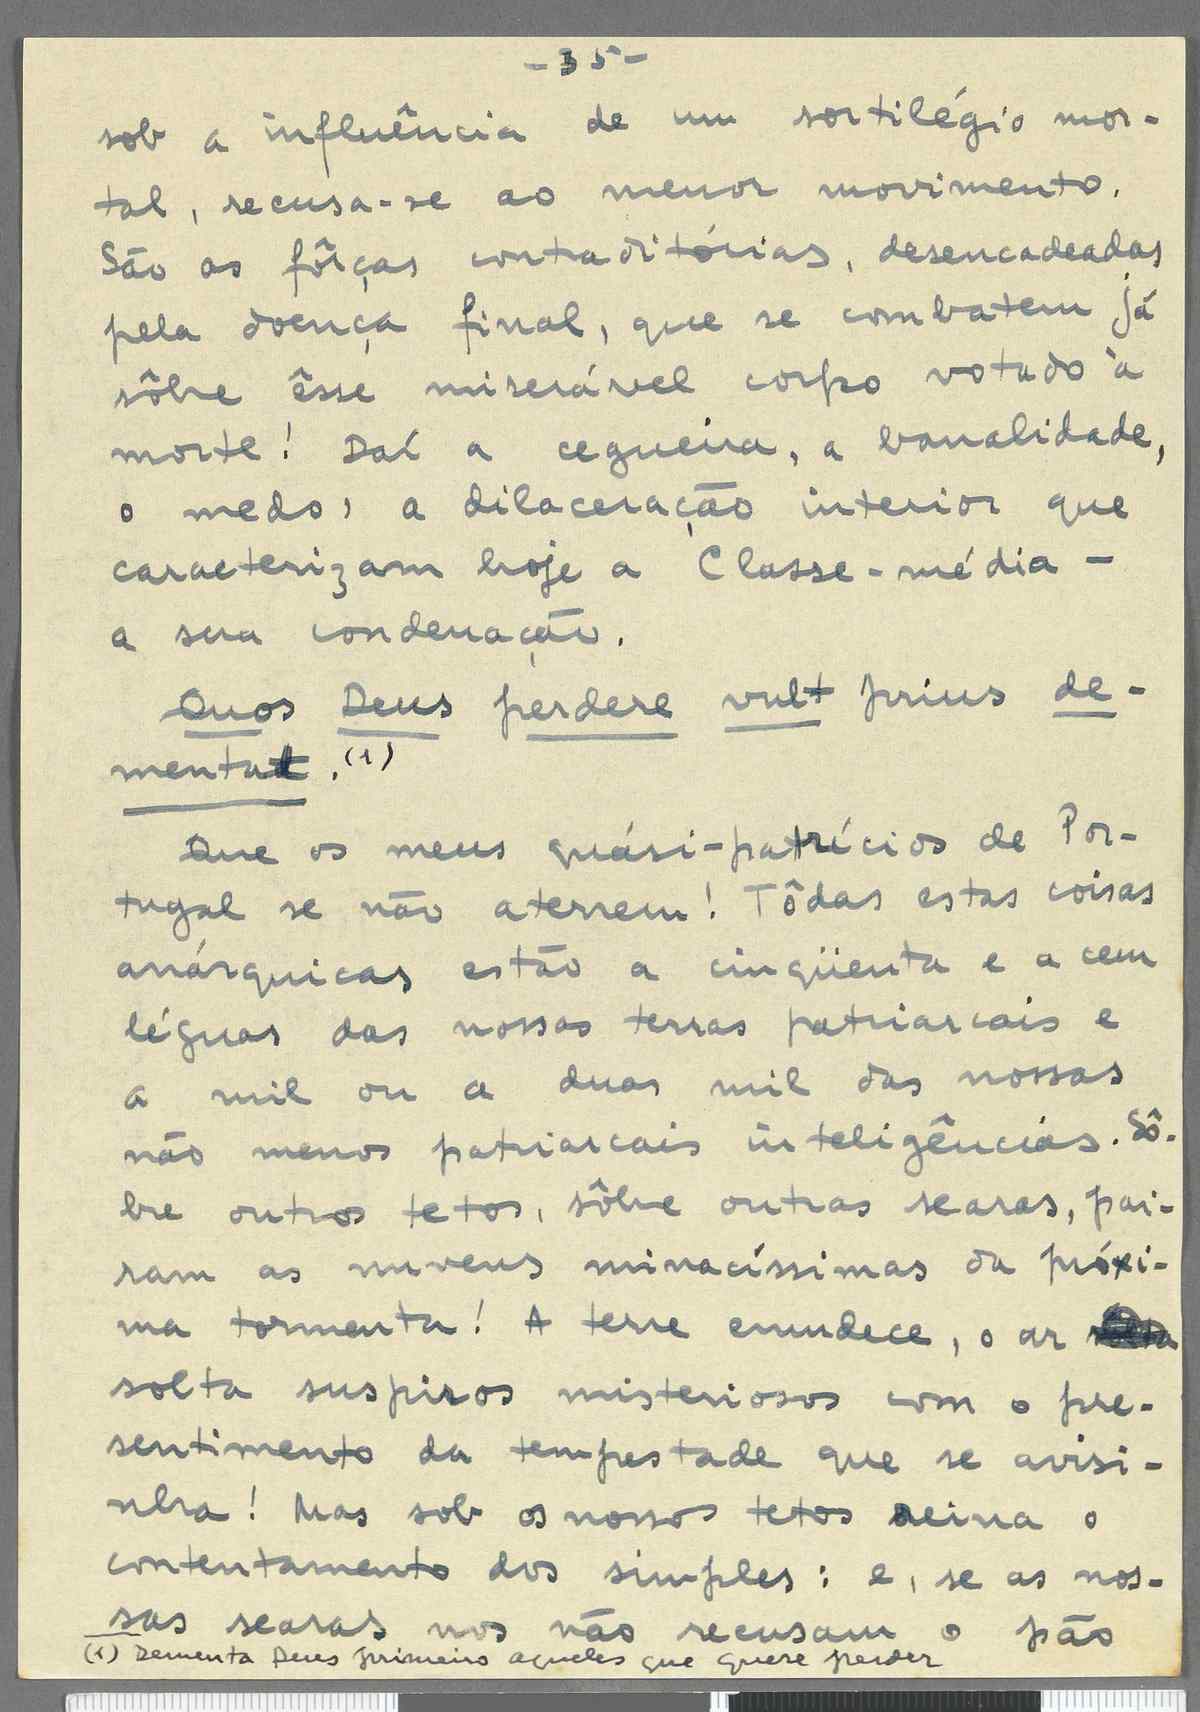 -35-
sob a influência de um sortilégio mor-
tal, recusa-se ao menor movimento.
São as fôrças contraditórias, desencadeadas
pela doença final, que se combatem já
sôbre êsse miserável corpo votado à
morte! Daí a cegueira, a banalidade,
o medo, a dilaceração interior que
caracterizam hoje a Classe-média -
a sua condenação.
Quos Deus perdere vult prius de-
mentat.(1)
Que os meus quási-patrícios de Por-
tugal se não aterrem! Tôdas estas coisas
anárquicas estão a cinqüenta e a cem
léguas das nossas terras patriarcais e
a mil ou a duas mil das nossas
não menos patriarcais inteligências. Sô-
bre outros tetos, sôbre outras searas, pai-
ram as nuvens minacíssimas da próxi-
ma tormenta! A terre emudece, o ar
solta suspiros misteriosos com o pre-
sentimento da tempestade que se avisi-
nha! Mas sob os nossos tetos reina o
contentamento dos simples: e, se as nos-
sas searas nos não recusam o pão
(1) Dementa Deus primeiro aqueles que quere perder